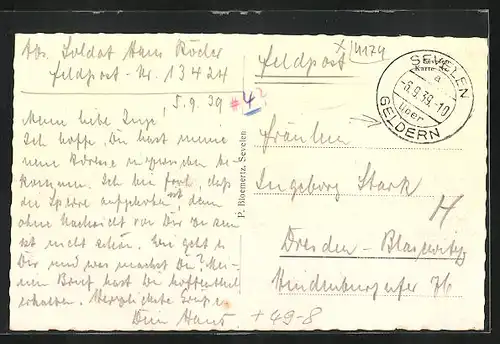 Abs. Soldat Hans Röder
Feldpost-Nr. 13424
5.9.39 #4?
Meine liebe Inge!
Ich hoffe, Du hast meine
neue Adresse inzwischen be-
kommen. Ich bin froh, daß
die Sperre aufgehoben ist, denn
ohne Nachricht von Dir zu sein
ist nicht schön. Wie geht es
Dir und was machst Du? Mei-
nen Brief hast Du hoffentlich
erhalten. Herzlichste Grüße
Dein Hans.
+49-8
P. Bloemertz, Sevelen
Feldpost
SEVELEN
a
-6.9.39.-10
über
GELDERN
Fräulein
Ingeborg Stark
H
Dresden-Blasewitz
Hindenburgufer 76